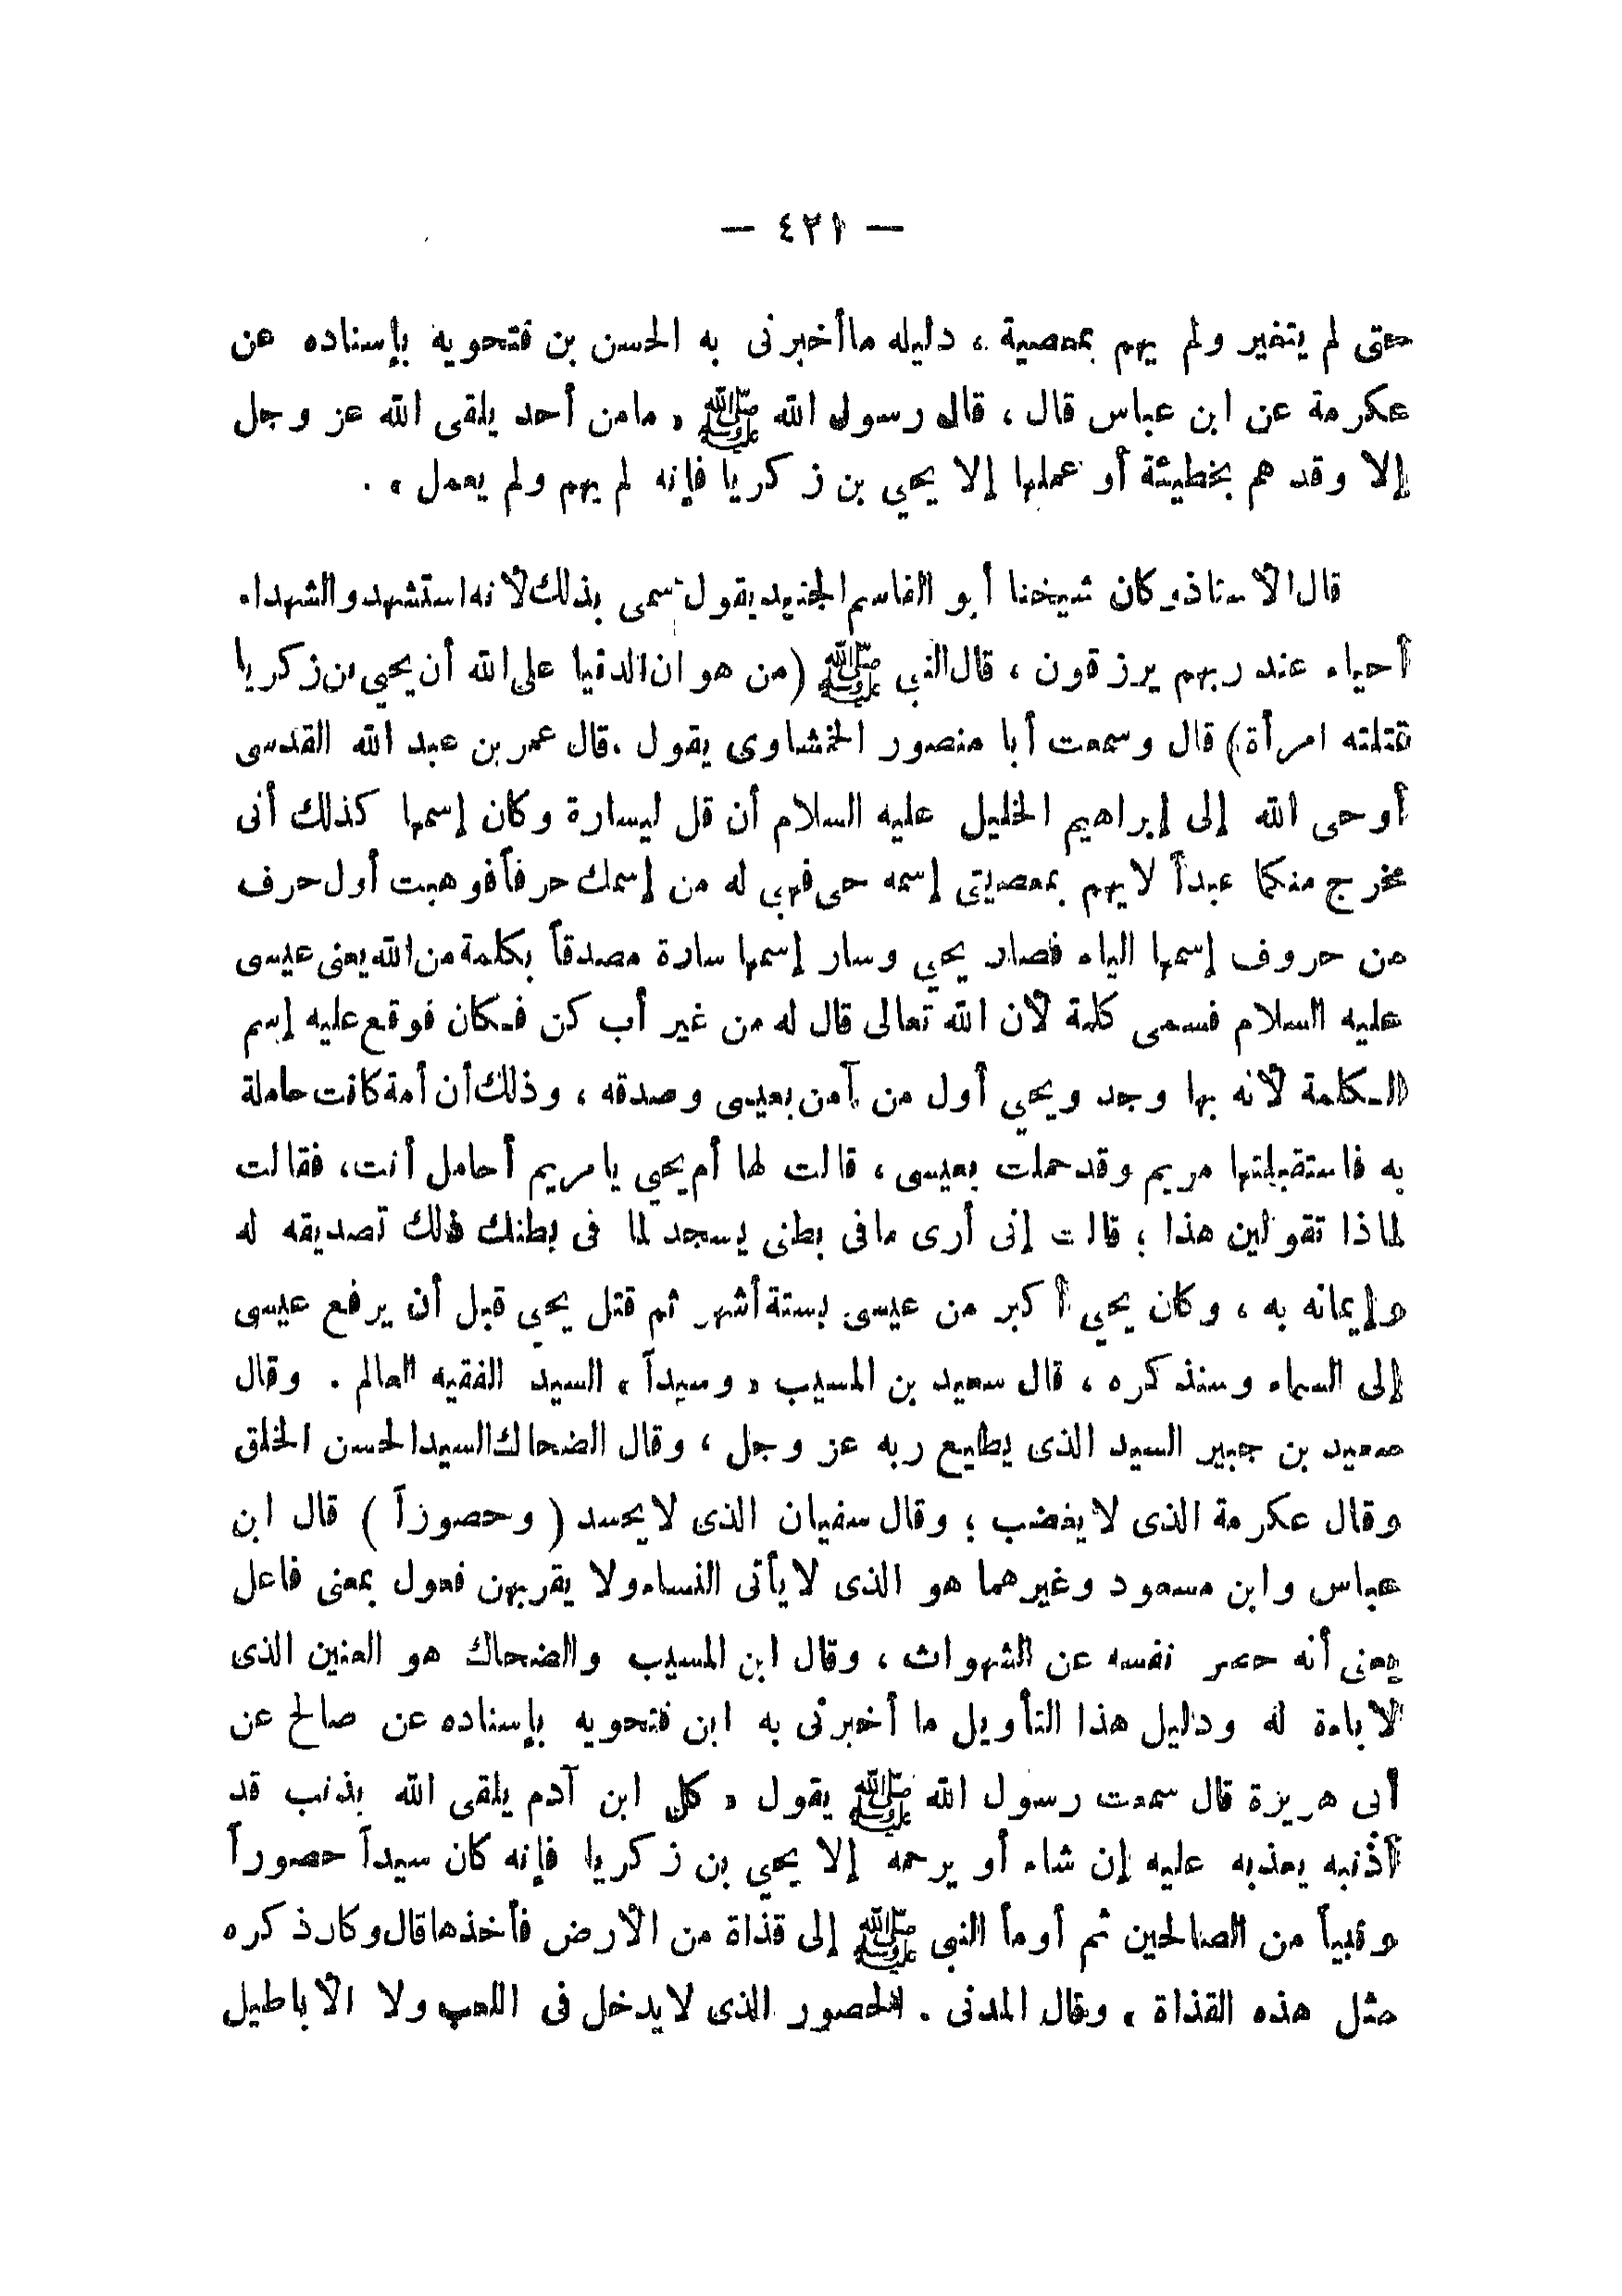 — ٤٢١ —
حتى لم يتغير ولم يهم بمعصية ، دليله ماأخبرنى به الحسن بن فتحويه بإسناده عن
عكرمة عن ابن عباس قال ، قال رسول الله ﷺ « مامن أحد يلقى الله عز وجل
إلا وقد هم بخطيئة أو عملها إلا يحيى بن زكريا فإنه لم يهم ولم يعمل » .
قال الأستاذ وكان شيخنا أبو القاسم الجنيد يقول سمى بذلك لأنه استشهد والشهداء
أحياء عند ربهم يرزقون ، قال النبى ﷺ (من هوان الدنيا على الله أن يحيى بن زكريا
قتلته امرأة) قال وسمعت أبا منصور الخشاوى يقول . قال عمر بن عبد الله القدسى
أوحى الله إلى إبراهيم الخليل عليه السلام أن قل ليسارة وكان إسمها كذلك أنى
مخرج منكما عبداً لا يهم بمعصيتى إسمه حى فهبى له من إسمك حرفاً فوهبت أول حرف
من حروف إسمها الياء فصار يحيى وسار إسمها سارة مصدقاً بكلمة من الله يعنى عيسى
عليه السلام فسمى كلمة لأن الله تعالى قال له من غير أب كن فكان فوقع عليه إسم
الكلمة لأنه بها وجد ويحيى أول من آمن بعيسى وصدقه ، وذلك أن أمة كانت حاملة
به فاستقبلتها مريم وقد حملت بعيسى ، قالت لها أم يحيى يا مريم أحامل أنت، فقالت
لماذا تقولين هذا ؛ قالت إنى أرى مافى بطنى يسجد لما فى بطنك فذلك تصديقه له
وإيمانه به ، وكان يحيى أكبر من عيسى بستة أشهر ثم قتل يحيى قبل أن يرفع عيسى
إلى السماء وسنذكره ، قال سعيد بن المسيب « وسيداً » السيد الفقيه العالم . وقال
سعيد بن جبير السيد الذى يطيع ربه عز وجل ، وقال الضحاك السيد الحسن الخلق
وقال عكرمة الذى لا يغضب ؛ وقال سفيان الذى لا يحسد ( وحصوراً ) قال ابن
عباس وابن مسعود وغيرهما هو الذى لا يأتى النساء ولا يقربهن فعول بمعنى فاعل
يعنى أنه حصر نفسه عن الشهوات ، وقال ابن المسيب والضحاك هو العنين الذى
لا باءة له ودليل هذا التأويل ما أخبرنى به ابن فتحويه بإسناده عن صالح عن
أبى هريرة قال سمعت رسول الله ﷺ يقول « كل ابن آدم يلقى الله بذنب قد
أذنبه يعذبه عليه إن شاء أو يرحمه إلا يحيى بن زكريا فإنه كان سيداً حصوراً
ونبياً من الصالحين ثم أومأ النبى ﷺ إلى قذاة من الأرض فأخذها قال وكان ذكره
مثل هذه القذاة » وقال المدنى . الحصور الذى لا يدخل فى اللعب ولا الأباطيل